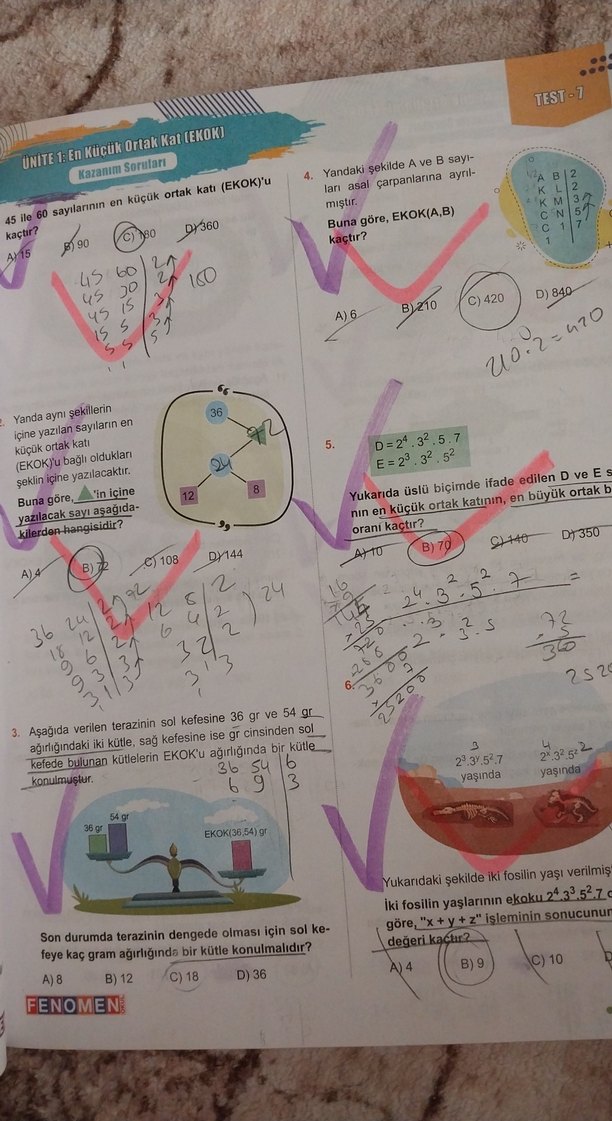 TEST - 7
ÜNİTE 1: En Küçük Ortak Kat (EKOK)
Kazanım Soruları
45 ile 60 sayılarının en küçük ortak katı (EKOK)'u
kaçtır?
A) 15 B) 90 C) 180 D) 360
45 60 2
45 30 2
45 15 3
15 5 3
5 5 5
1 1
180
2. Yanda aynı şekillerin
içine yazılan sayıların en
küçük ortak katı
(EKOK)'u bağlı oldukları
şeklin içine yazılacaktır.
Buna göre, 'in içine
yazılacak sayı aşağıda-
kilerden hangisidir?
36
24
12 8
A) 4 B) 72 C) 108 D) 144
36 24 2
18 12 2
9 6 2
9 3 3
3 1 3
12 8 2
6 4 2
3 2 2
3 1 3
24
3. Aşağıda verilen terazinin sol kefesine 36 gr ve 54 gr
ağırlığındaki iki kütle, sağ kefesine ise gr cinsinden sol
kefede bulunan kütlelerin EKOK'u ağırlığında bir kütle
konulmuştur.
36 54 6
6 9 3
54 gr
36 gr
EKOK(36,54) gr
Son durumda terazinin dengede olması için sol ke-
feye kaç gram ağırlığında bir kütle konulmalıdır?
A) 8 B) 12 C) 18 D) 36
FENOMEN
4. Yandaki şekilde A ve B sayı-
ları asal çarpanlarına ayrıl-
mıştır.
Buna göre, EKOK(A,B)
kaçtır?
A B 2
K L 2
K M 3
C N 5
C 1 7
1
A) 6 B) 210 C) 420 D) 840
210.2=420
5.
D = 2⁴ . 3² . 5 . 7
E = 2³ . 3² . 5²
Yukarıda üslü biçimde ifade edilen D ve E s
nın en küçük ortak katının, en büyük ortak b
oranı kaçtır?
A) 10 B) 70 C) 140 D) 350
2⁴ . 3² . 5² . 7 =
2³ . 3² . 5
16
144
720
3600
25200
72
5
360
252
6.
3
2³.3ʸ.5².7
yaşında
4 2
2ˣ.3².5ᶻ
yaşında
Yukarıdaki şekilde iki fosilin yaşı verilmiş
İki fosilin yaşlarının ekoku 2⁴.3³.5².7 o
göre, "x + y + z" işleminin sonucunun
değeri kaçtır?
A) 4 B) 9 C) 10